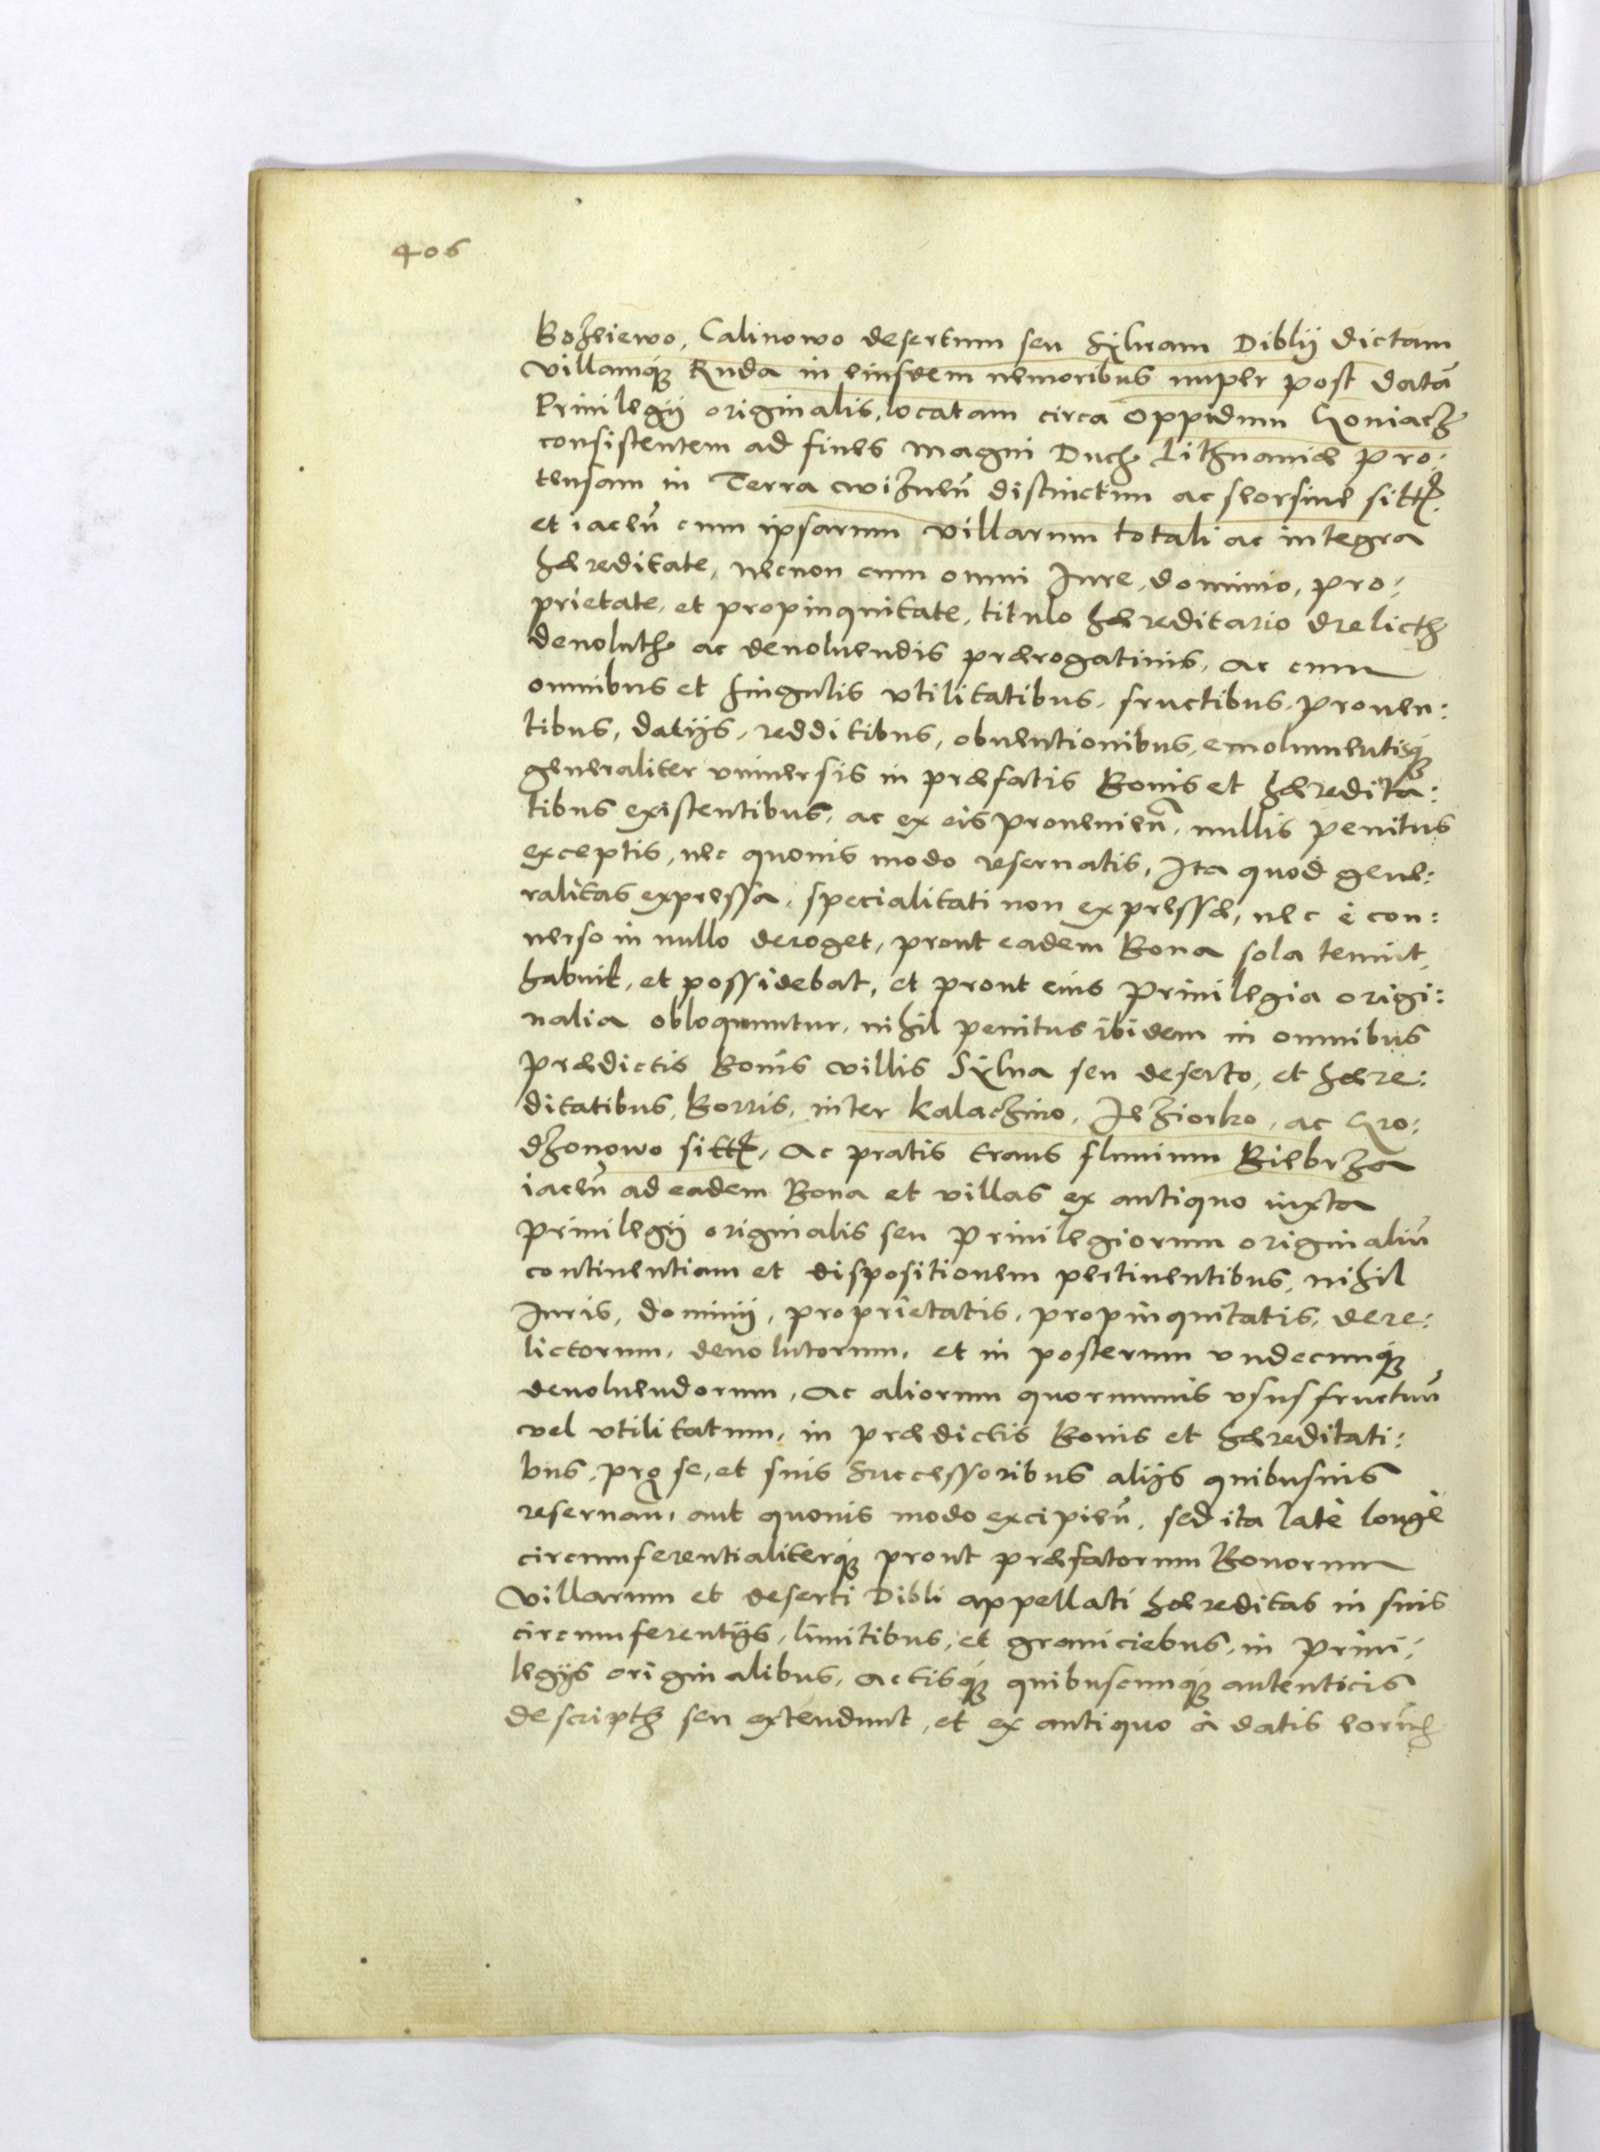 406
Bozheiewo, Calinowo desertum seu Sylvam Diblij dictam
villamque Ruda in eiusdem nemoribus nuper post datā
Privilegij originalis, locatam circa oppidum Goniacz
consistentem ad fines Magni Duc Lithuaniæ pro:
tensam in Terra Wiznen̄ distinctim ac seorsive sitt
et iacen̄ cum ipsarum villarum totali ac integra
hæreditate, necnon cum omni Iure, dominio, pro:
prietate, et propinquitate, titulo hæreditario drelict
devolut ac devoluendis prærogativis, ac cum
omnibus et singulis utilitatibus, fructibus, proven:
tibus, datijs, redditibus, obventionibus, emolumentisque
generaliter universis in præfatis Bonis et hæredita:
tibus existentibus, ac ex eis provenien̄, nullis penitus
exceptis, nec quovis modo reservatis, Ita quod gene:
ralitas expressa, specialitati non expressæ, nec è con:
verso in nullo deroget, prout eadem Bona sola tenuit,
habuit, et possidebat, et prout eius Privilegia origi:
nalia obloquuntur, nihil penitus ibidem in omnibus
prædictis Bonis villis Sylva seu deserto, et hære:
ditatibus, Borris, inter Kalaczino, Jeziorko, ac Gro:
dzonowo sitt, Ac pratis trans fluvium Biebrza
iacen̄ ad eadem Bona et villas ex antiquo iuxta
privilegij originalis seu Privilegiorum originaliū
continentiam et dispositionem pertinentibus, nihil
Iuris, dominij, proprietatis, propinquitatis, dere:
lictorum, devolutorum, et in posterum undecunque
devoluendorum, Ac aliorum quorumvis ususfructuū
vel utilitatum, in prædictis Bonis et hæreditati:
bus, pro se, et suis Successoribus alijs quibusvis
reservan̄, aut quovis modo excipien̄, sed ita latè longè
circumferentialiterque prout præfatorum Bonorum
Villarum et deserti Dibli appellati hæreditas in suis
circumferentijs, limitibus, et graniciebus, in privi:
legijs originalibus, Actisque quibuscunque autenticis
descript seu extendunt, et ex antiquo à datis eorum